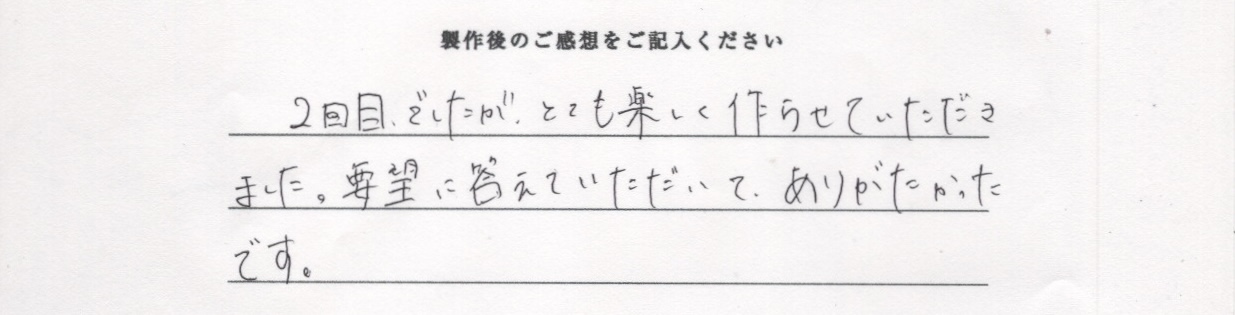 製作後のご感想をご記入ください
2回目、でしたが、とても楽しく作らせていただき
ました。要望に答えていただいて、ありがたかった
です。